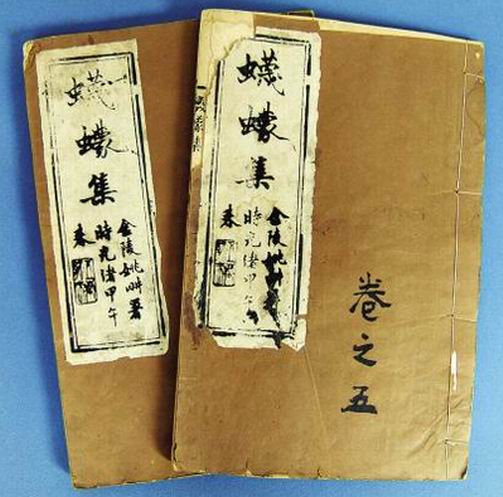 蠛蠓集
金陵姚署
時光緒甲午
春
蠛蠓集
金陵姚署
時光緒甲午
春
卷之五